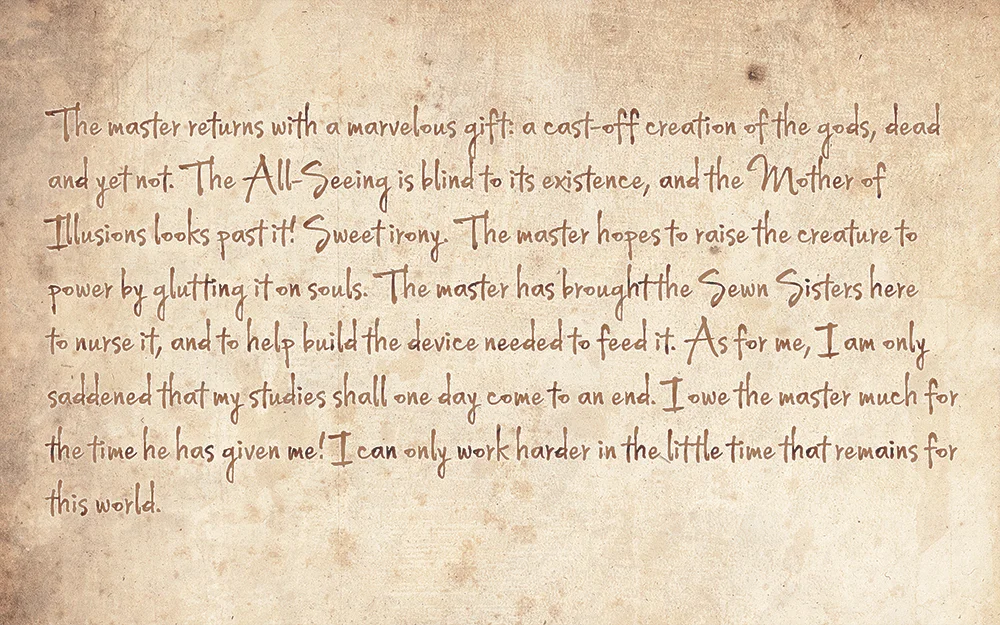 The master returns with a marvelous gift: a cast-off creation of the gods, dead
and yet not. The All-Seeing is blind to its existence, and the Mother of
Illusions looks past it! Sweet irony. The master hopes to raise the creature to
power by glutting it on souls. The master has brought the Sewn Sisters here
to nurse it, and to help build the device needed to feed it. As for me, I am only
saddened that my studies shall one day come to an end. I owe the master much for
the time he has given me! I can only work harder in the little time that remains for
this world.